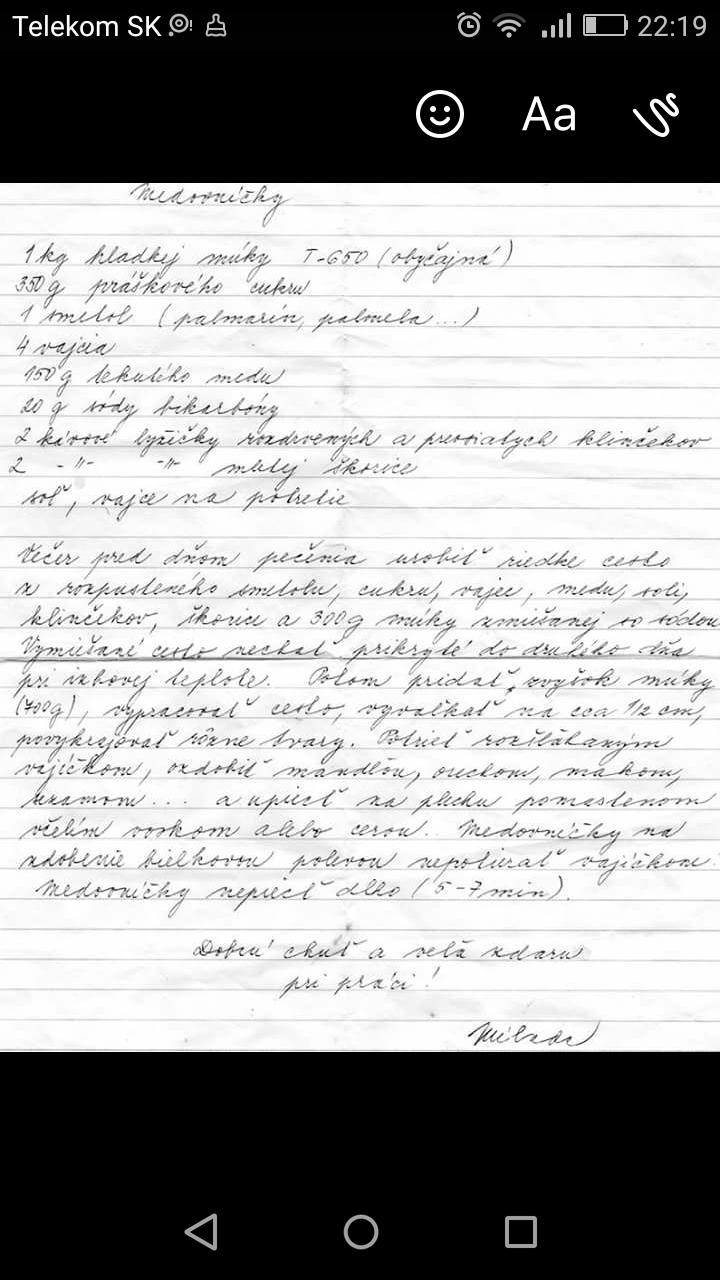 Telekom SK
22:19
Aa
Medovníčky
1 kg hladkej múky T-650 (obyčajná)
350 g práškového cukru
1 smetol (palmarín, palmela...)
4 vajcia
150 g tekutého medu
20 g sódy bikarbóny
2 kávové lyžičky rozdrvených a preosiatych klinčekov
2 -"- -"- mletej škorice
soľ, vajce na potretie
Večer pred dňom pečenia urobiť riedke cesto
z rozpusteného smetolu, cukru, vajec, medu, soli,
klinčekov, škorice a 300g múky zmiešanej so sódou
Vymiešané cesto nechať prikryté do druhého dňa
pri izbovej teplote. Potom pridať zvyšok múky
(700g), vypracovať cesto, vyvaľkať na cca 1/2 cm,
povykrajovať rôzne tvary. Potrieť rozšľahaným
vajíčkom, ozdobiť mandľou, orechom, makom,
sezamom... a upiecť na plechu pomastenom
včelím voskom alebo cerou.. Medovníčky na
zdobenie bielkovou polevou nepotierať vajíčkom.
Medovníčky nepiecť dlho (5-7 min).
Dobrú chuť a veľa zdaru
pri práci!